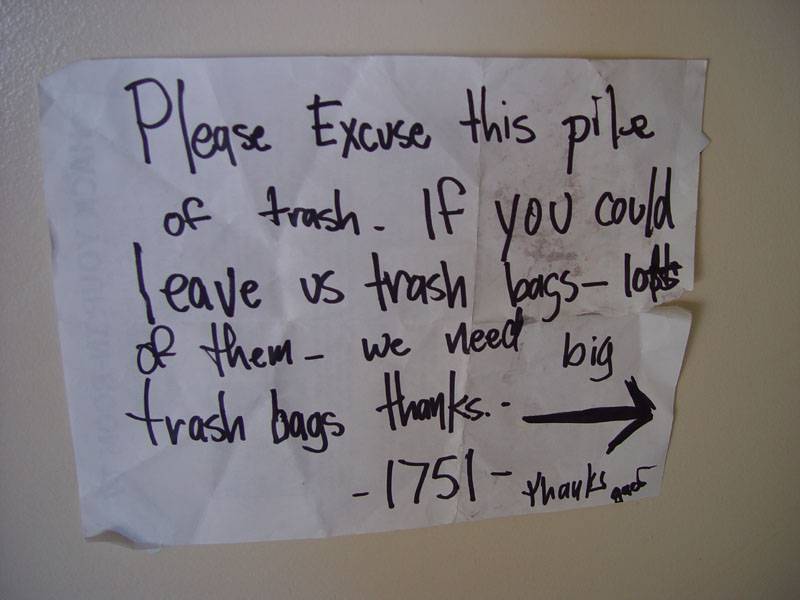 Please Excuse this pile
of trash. If you could
leave us trash bags - lots
of them - we need big
trash bags thanks.-
-1751- thanks